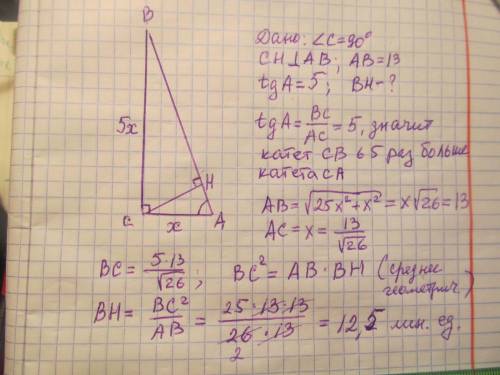 B
Дано: ∠C=90°
CH⊥AB; AB=13
tgA=5; BH-?
5x
tgA=BC/AC=5, значит
катет CB в 5 раз больше
катета CA
H
C
x
A
AB=√(25x²+x²)=x√26=13
AC=x=13/√26
BC=5·13/√26; BC²=AB·BH (среднее
геометрич.)
BH=BC²/AB=25·13·13/26·13=12,5 лин. ед.
2